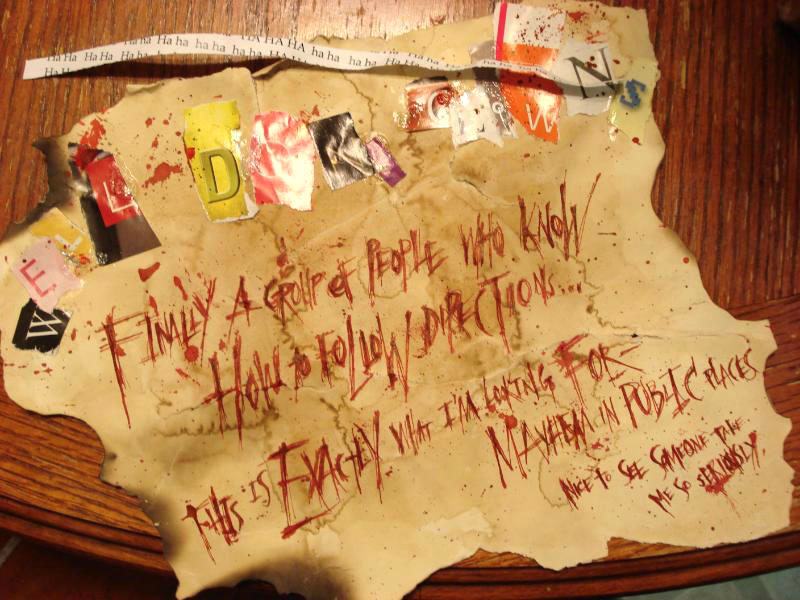 Ha ha Ha ha ha ha HA HA HA ha ha ha ha
Ha Ha Ha Ha ha ha ha ha ha
Ha Ha
WELL DONE CLOWNS
FINALLY A GROUP OF PEOPLE WHO KNOW
HOW TO FOLLOW DIRECTIONS...
THIS IS EXACTLY WHAT I'M LOOKING FOR—
MAYHEM IN PUBLIC PLACES
NICE TO SEE SOMEONE TAKE
ME SO SERIOUSLY.